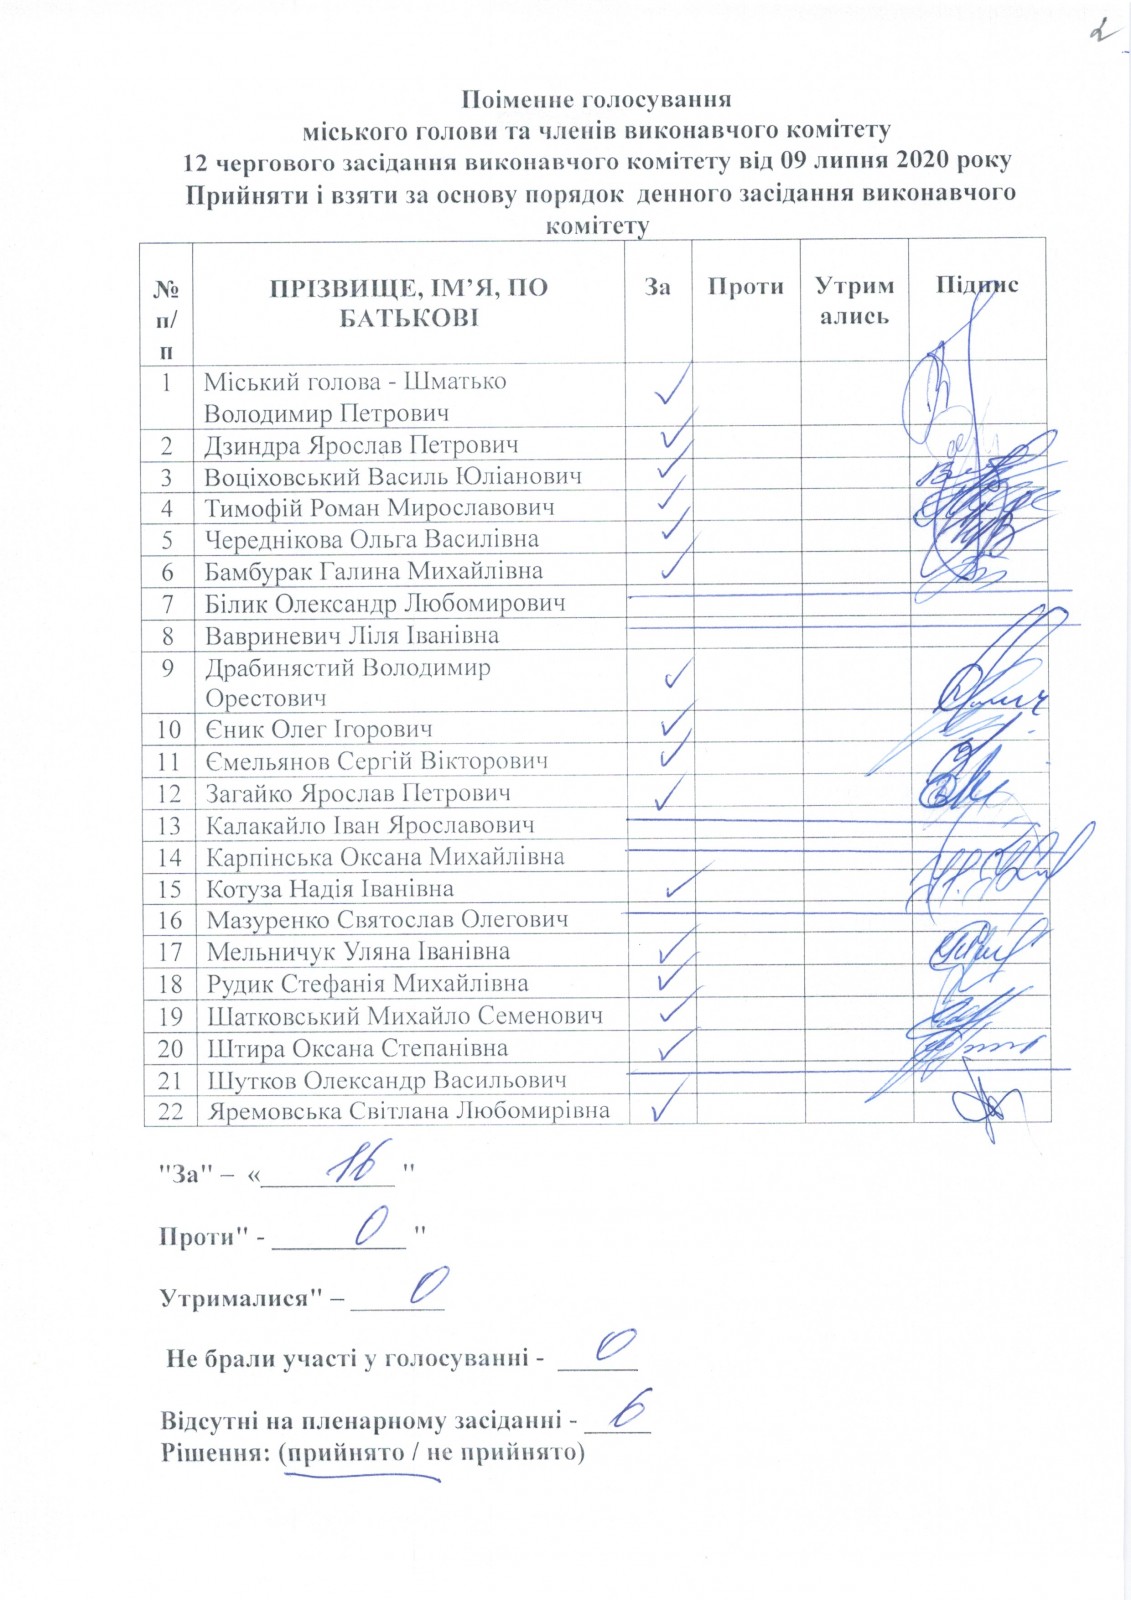 2
Поіменне голосування
міського голови та членів виконавчого комітету
12 чергового засідання виконавчого комітету від 09 липня 2020 року
Прийняти і взяти за основу порядок денного засідання виконавчого
комітету
№ п/п ПРІЗВИЩЕ, ІМ’Я, ПО БАТЬКОВІ За Проти Утримались Підпис
1 Міський голова - Шматько
Володимир Петрович ✓
2 Дзиндра Ярослав Петрович ✓
3 Воціховський Василь Юліанович ✓
4 Тимофій Роман Мирославович ✓
5 Череднікова Ольга Василівна ✓
6 Бамбурак Галина Михайлівна ✓
7 Білик Олександр Любомирович
8 Вавриневич Ліля Іванівна
9 Драбинястий Володимир
Орестович ✓
10 Єник Олег Ігорович ✓
11 Ємельянов Сергій Вікторович ✓
12 Загайко Ярослав Петрович ✓
13 Калакайло Іван Ярославович
14 Карпінська Оксана Михайлівна
15 Котуза Надія Іванівна ✓
16 Мазуренко Святослав Олегович
17 Мельничук Уляна Іванівна ✓
18 Рудик Стефанія Михайлівна ✓
19 Шатковський Михайло Семенович ✓
20 Штира Оксана Степанівна ✓
21 Шутков Олександр Васильович
22 Яремовська Світлана Любомирівна ✓
"За" – « 16 "
Проти" - 0 "
Утрималися" – 0
Не брали участі у голосуванні - 0
Відсутні на пленарному засіданні - 6
Рішення: (прийнято / не прийнято)